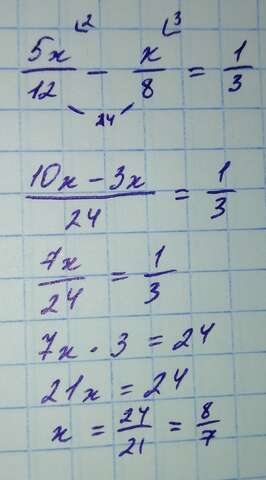 5x/12 ² - x/8 ³ = 1/3
24
10x - 3x/24 = 1/3
7x/24 = 1/3
7x · 3 = 24
21x = 24
x = 24/21 = 8/7